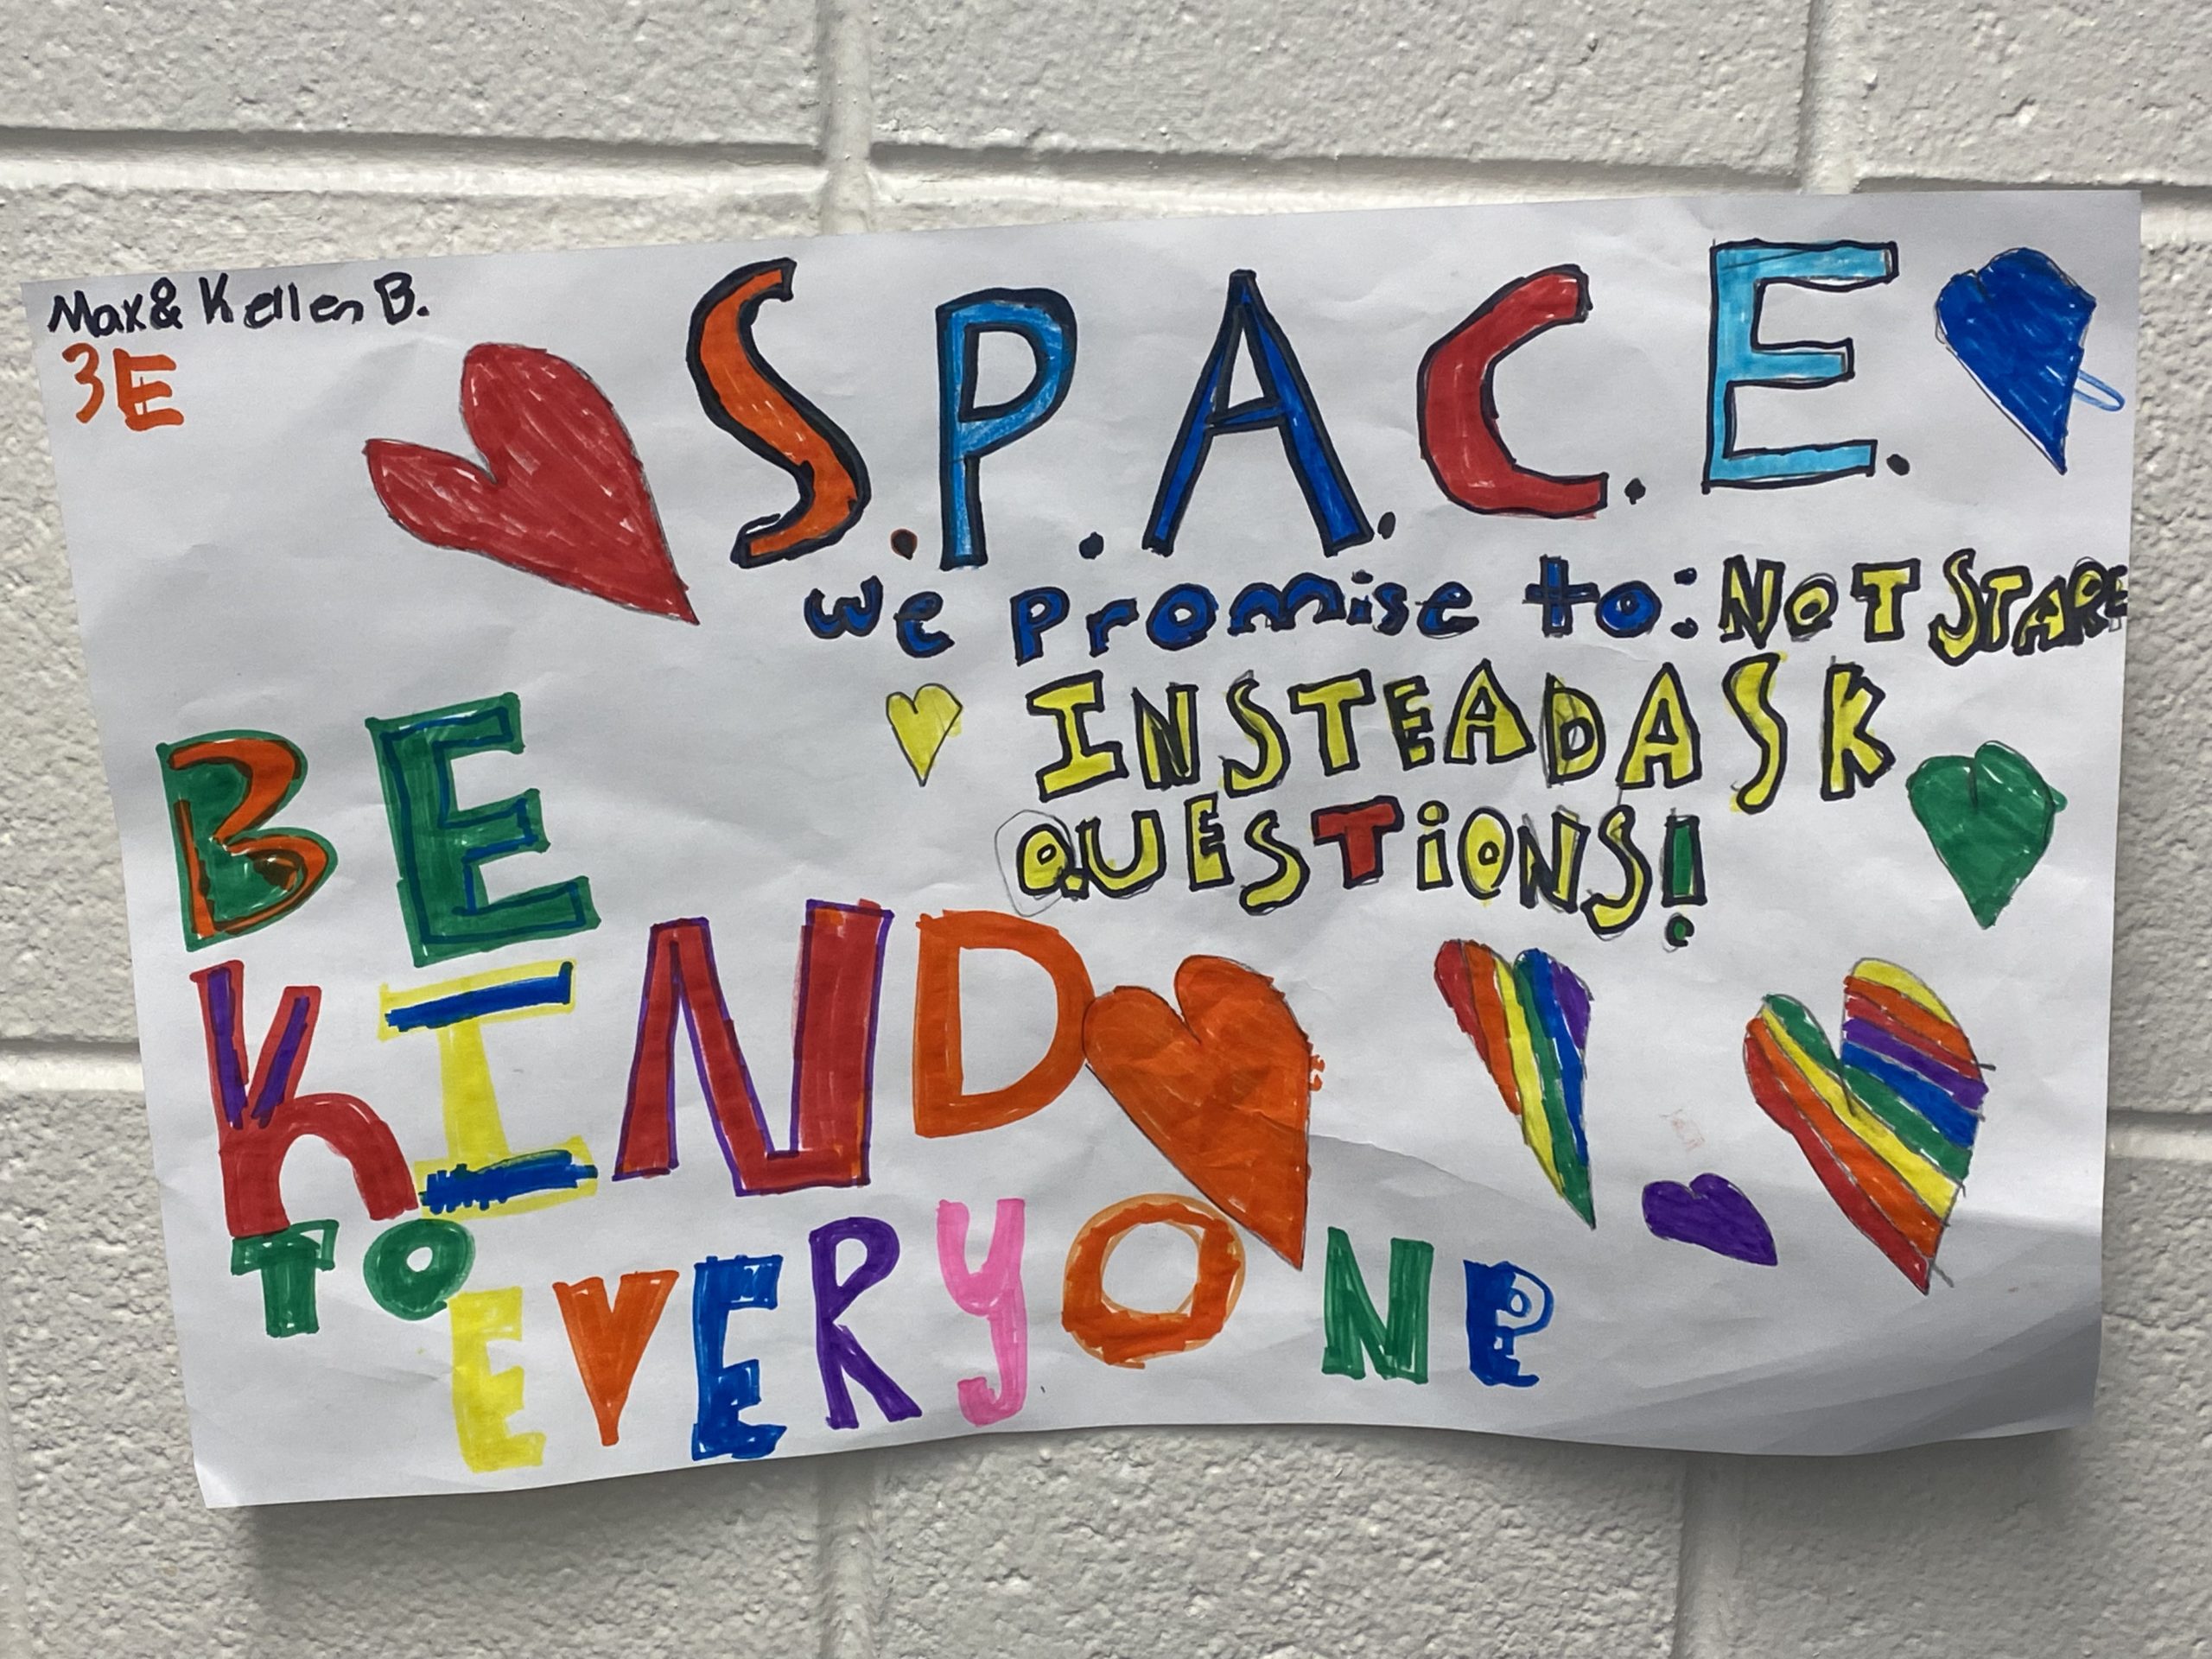 Max & Kellen B.
3E
S.P.A.C.E.
we promise to: NOT STARE
INSTEAD ASK
QUESTIONS!
BE
KIND
TO
EVERYONE